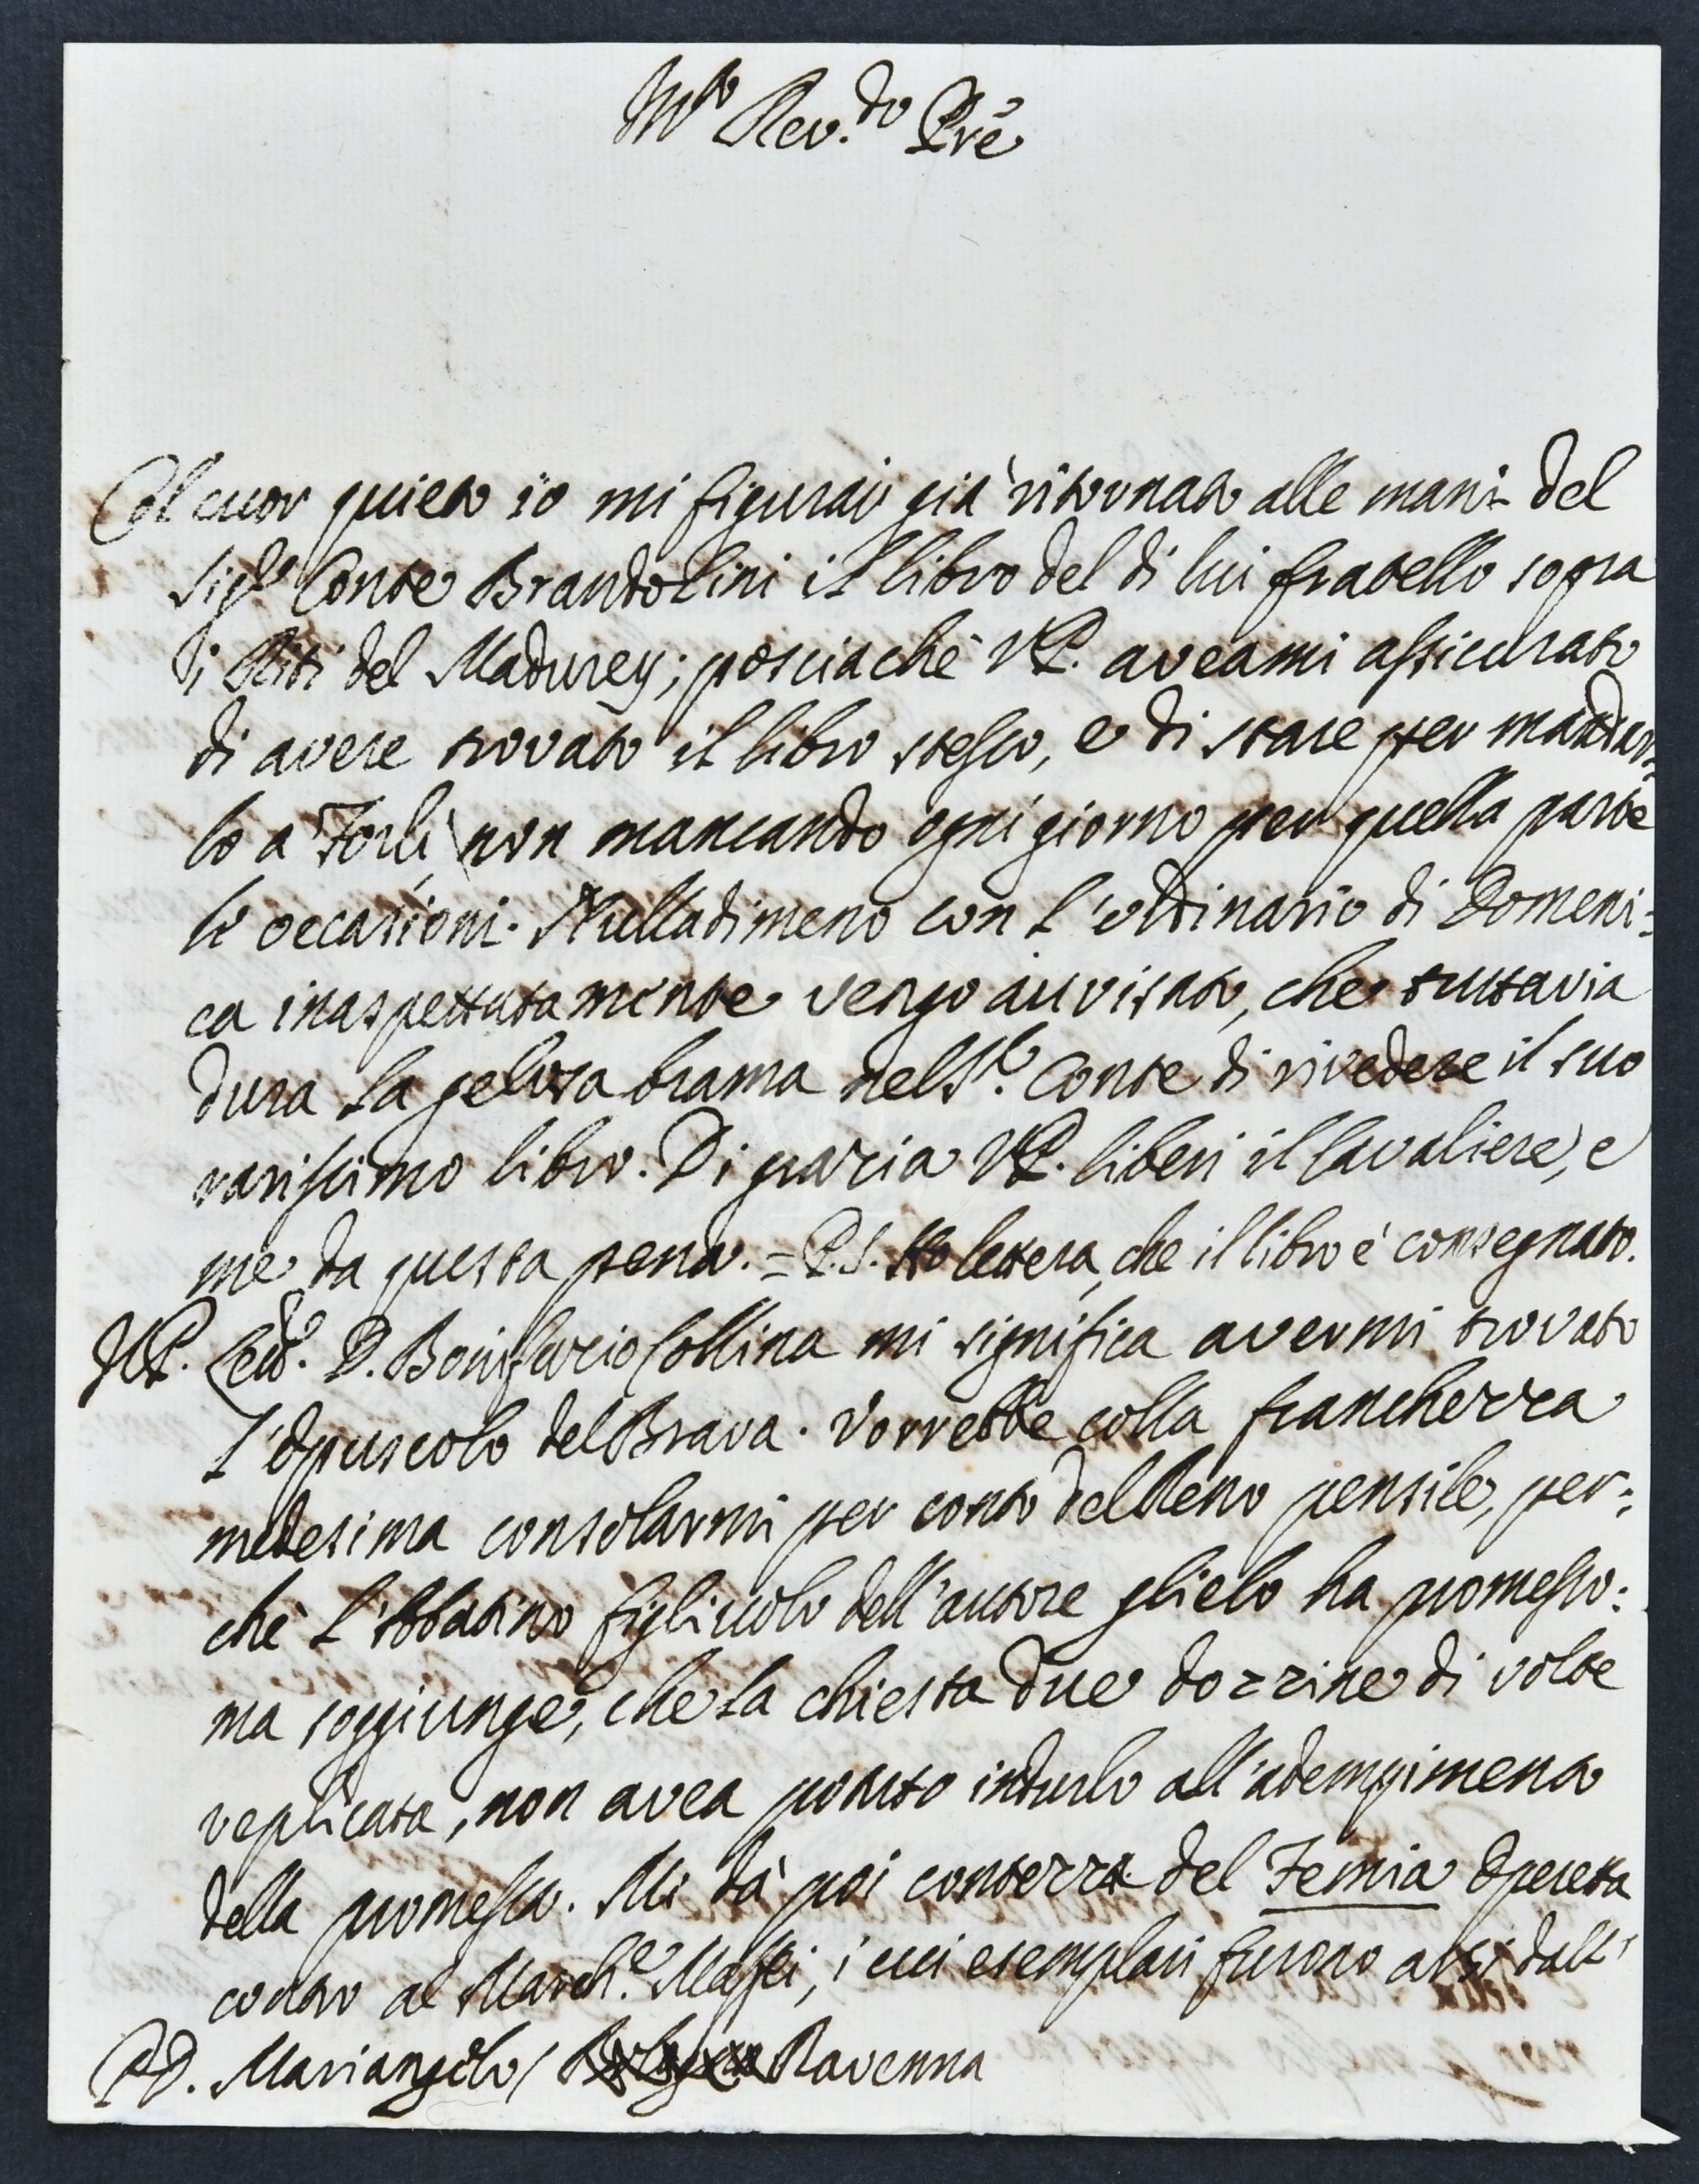 M.to Rev.do Prē
Col cuor quieto io mi figurai già ritornato alle mani del
Sig.r Conte Brandolini il libro del di lui fratello sopra
i Riti del Madurey; posciachè VP. aveami assicurato
di avere trovato il libro stesso, e di stare per mandar=
lo a Forlì, non mancando ogni giorno per quella parte
le occasioni. Nulladimeno con l'ordinario di Domeni=
ca inaspettatamente vengo avvisato, che tuttavia
dura la gelosa brama nel S.r Conte di rivedere il suo
rarissimo libro. Di grazia VP. liberi il Cavaliere, e
me da questa pena. = P.S. Ho lettera, che il libro è consegnato.
Il P. D. Bonifacio Collina mi significa avermi trovato
l'Opuscolo del Brava. Vorrebbe colla franchezza
medesima consolarmi per conto del Reno pensile, per=
chè l'Abbatino figliuolo dell'autore glielo ha promesso:
ma soggiunge, che la chiesta due dozzine di volte
replicata, non avea potuto indurlo all'adempimento
della promessa. Mi dà poi contezza del Femia Operetta
contro al March.e Maffei, i cui esemplari furono arsi dall'
PD. Mariangelo / Ravenna